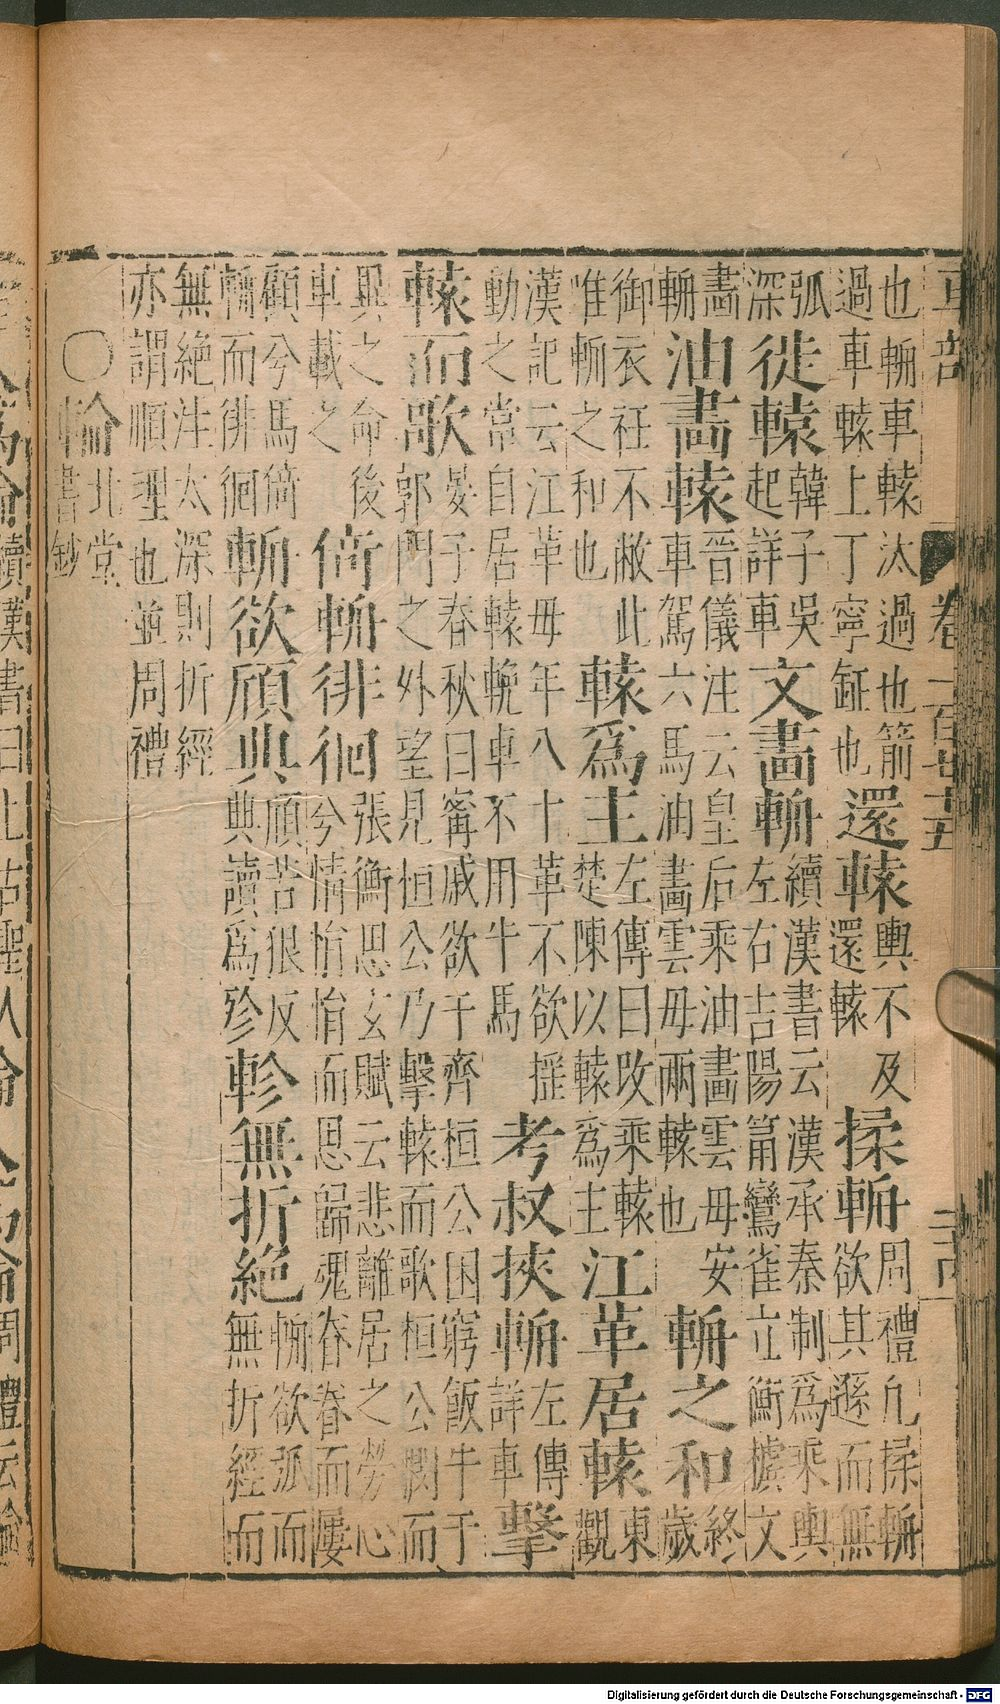 車部 卷一百七十五 二十四
也輈車轅汰過也箭過車轅上丁寧鉦也還轅輿不及還轅揉輈周禮凢揉輈欲其遜而無
弧深徙轅韓子吳起詳車文畫輈續漢書云漢承秦制爲乘輿左右吉陽筩鸞雀立衡櫎文
畫輈油畫轅晉儀注云皇后乘油畫雲毋安車駕六馬油畫雲毋兩轅也輈之和終歲
御衣衽不敝此唯輈之和也轅爲主左傳曰改乘轅楚陳以轅爲主江革居轅東觀
漢記云江革毋年八十革不欲搖動之常自居轅輓車不用牛馬考叔挾輈左傳詳車擊
轅而歌晏子春秋曰寗戚欲干齊桓公困窮飯牛于郭門之外望見桓公乃擊轅而歌桓公聞而
異之命後車載之倚輈徘徊張衡思玄賦云悲離居之勞心兮情悁悁而思歸魂眷眷而屢
顧兮馬倚輈而徘徊輈欲頎典頎苦狠反典讀爲殄軫無折絕輈欲弧而無折經而
無絕注太深則折經亦謂順理也並周禮
○輪北堂書鈔
Digitalisierung gefördert durch die Deutsche Forschungsgemeinschaft - DFG